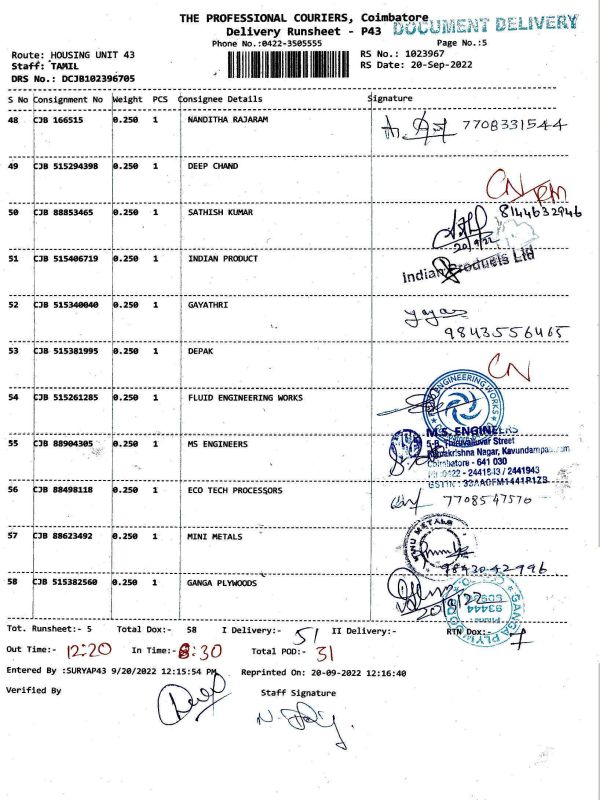 THE PROFESSIONAL COURIERS, Coimbatore
DOCUMENT DELIVERY
Delivery Runsheet - P43
Phone No.:0422-3505555 Page No.:5
Route: HOUSING UNIT 43 RS No.: 1023967
Staff: TAMIL RS Date: 20-Sep-2022
DRS No.: DCJB102396705
S No Consignment No Weight PCS Consignee Details Signature
48 CJB 166515 0.250 1 NANDITHA RAJARAM 7708331544
49 CJB 515294398 0.250 1 DEEP CHAND CN RM
50 CJB 88853465 0.250 1 SATHISH KUMAR 8144632946
20/9/22
51 CJB 515406719 0.250 1 INDIAN PRODUCT Indian Products Ltd
52 CJB 515340040 0.250 1 GAYATHRI
9843556465
53 CJB 515381995 0.250 1 DEPAK CN
54 CJB 515261285 0.250 1 FLUID ENGINEERING WORKS ENGINEERING WORKS
55 CJB 88904305 0.250 1 MS ENGINEERS M.S. ENGINEERS
Thiruvalluvar Street
Ramakrishna Nagar, Kavundampa
Coimbatore - 641 030
0422 - 2441843 / 2441943
GSTIN : 33AAOFM1441R1ZB
56 CJB 88498118 0.250 1 ECO TECH PROCESSORS 7708547570
57 CJB 88623492 0.250 1 MINI METALS METALS
9843042996
58 CJB 515382560 0.250 1 GANGA PLYWOODS GANGA PLYWOO
93444
Tot. Runsheet:- 5 Total Dox:- 58 I Delivery:- 51 II Delivery:- RTN Dox:- 7
Out Time:- 12:20 In Time:- 8:30 Total POD:- 31
Entered By :SURYAP43 9/20/2022 12:15:54 PM Reprinted On: 20-09-2022 12:16:40
Verified By Staff Signature